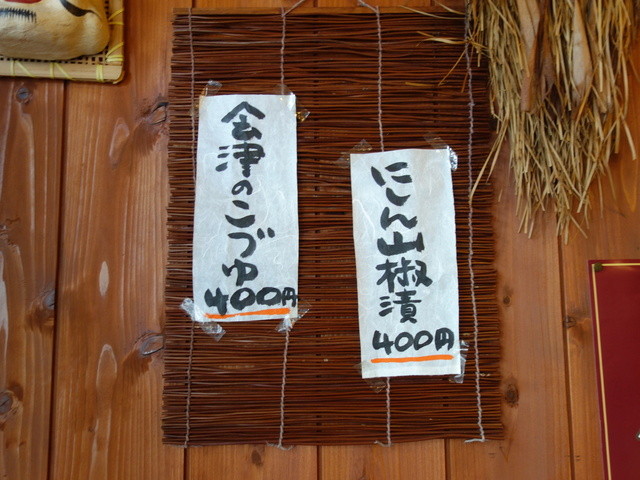 にしん山椒漬
400円
会津のこづゆ
400円